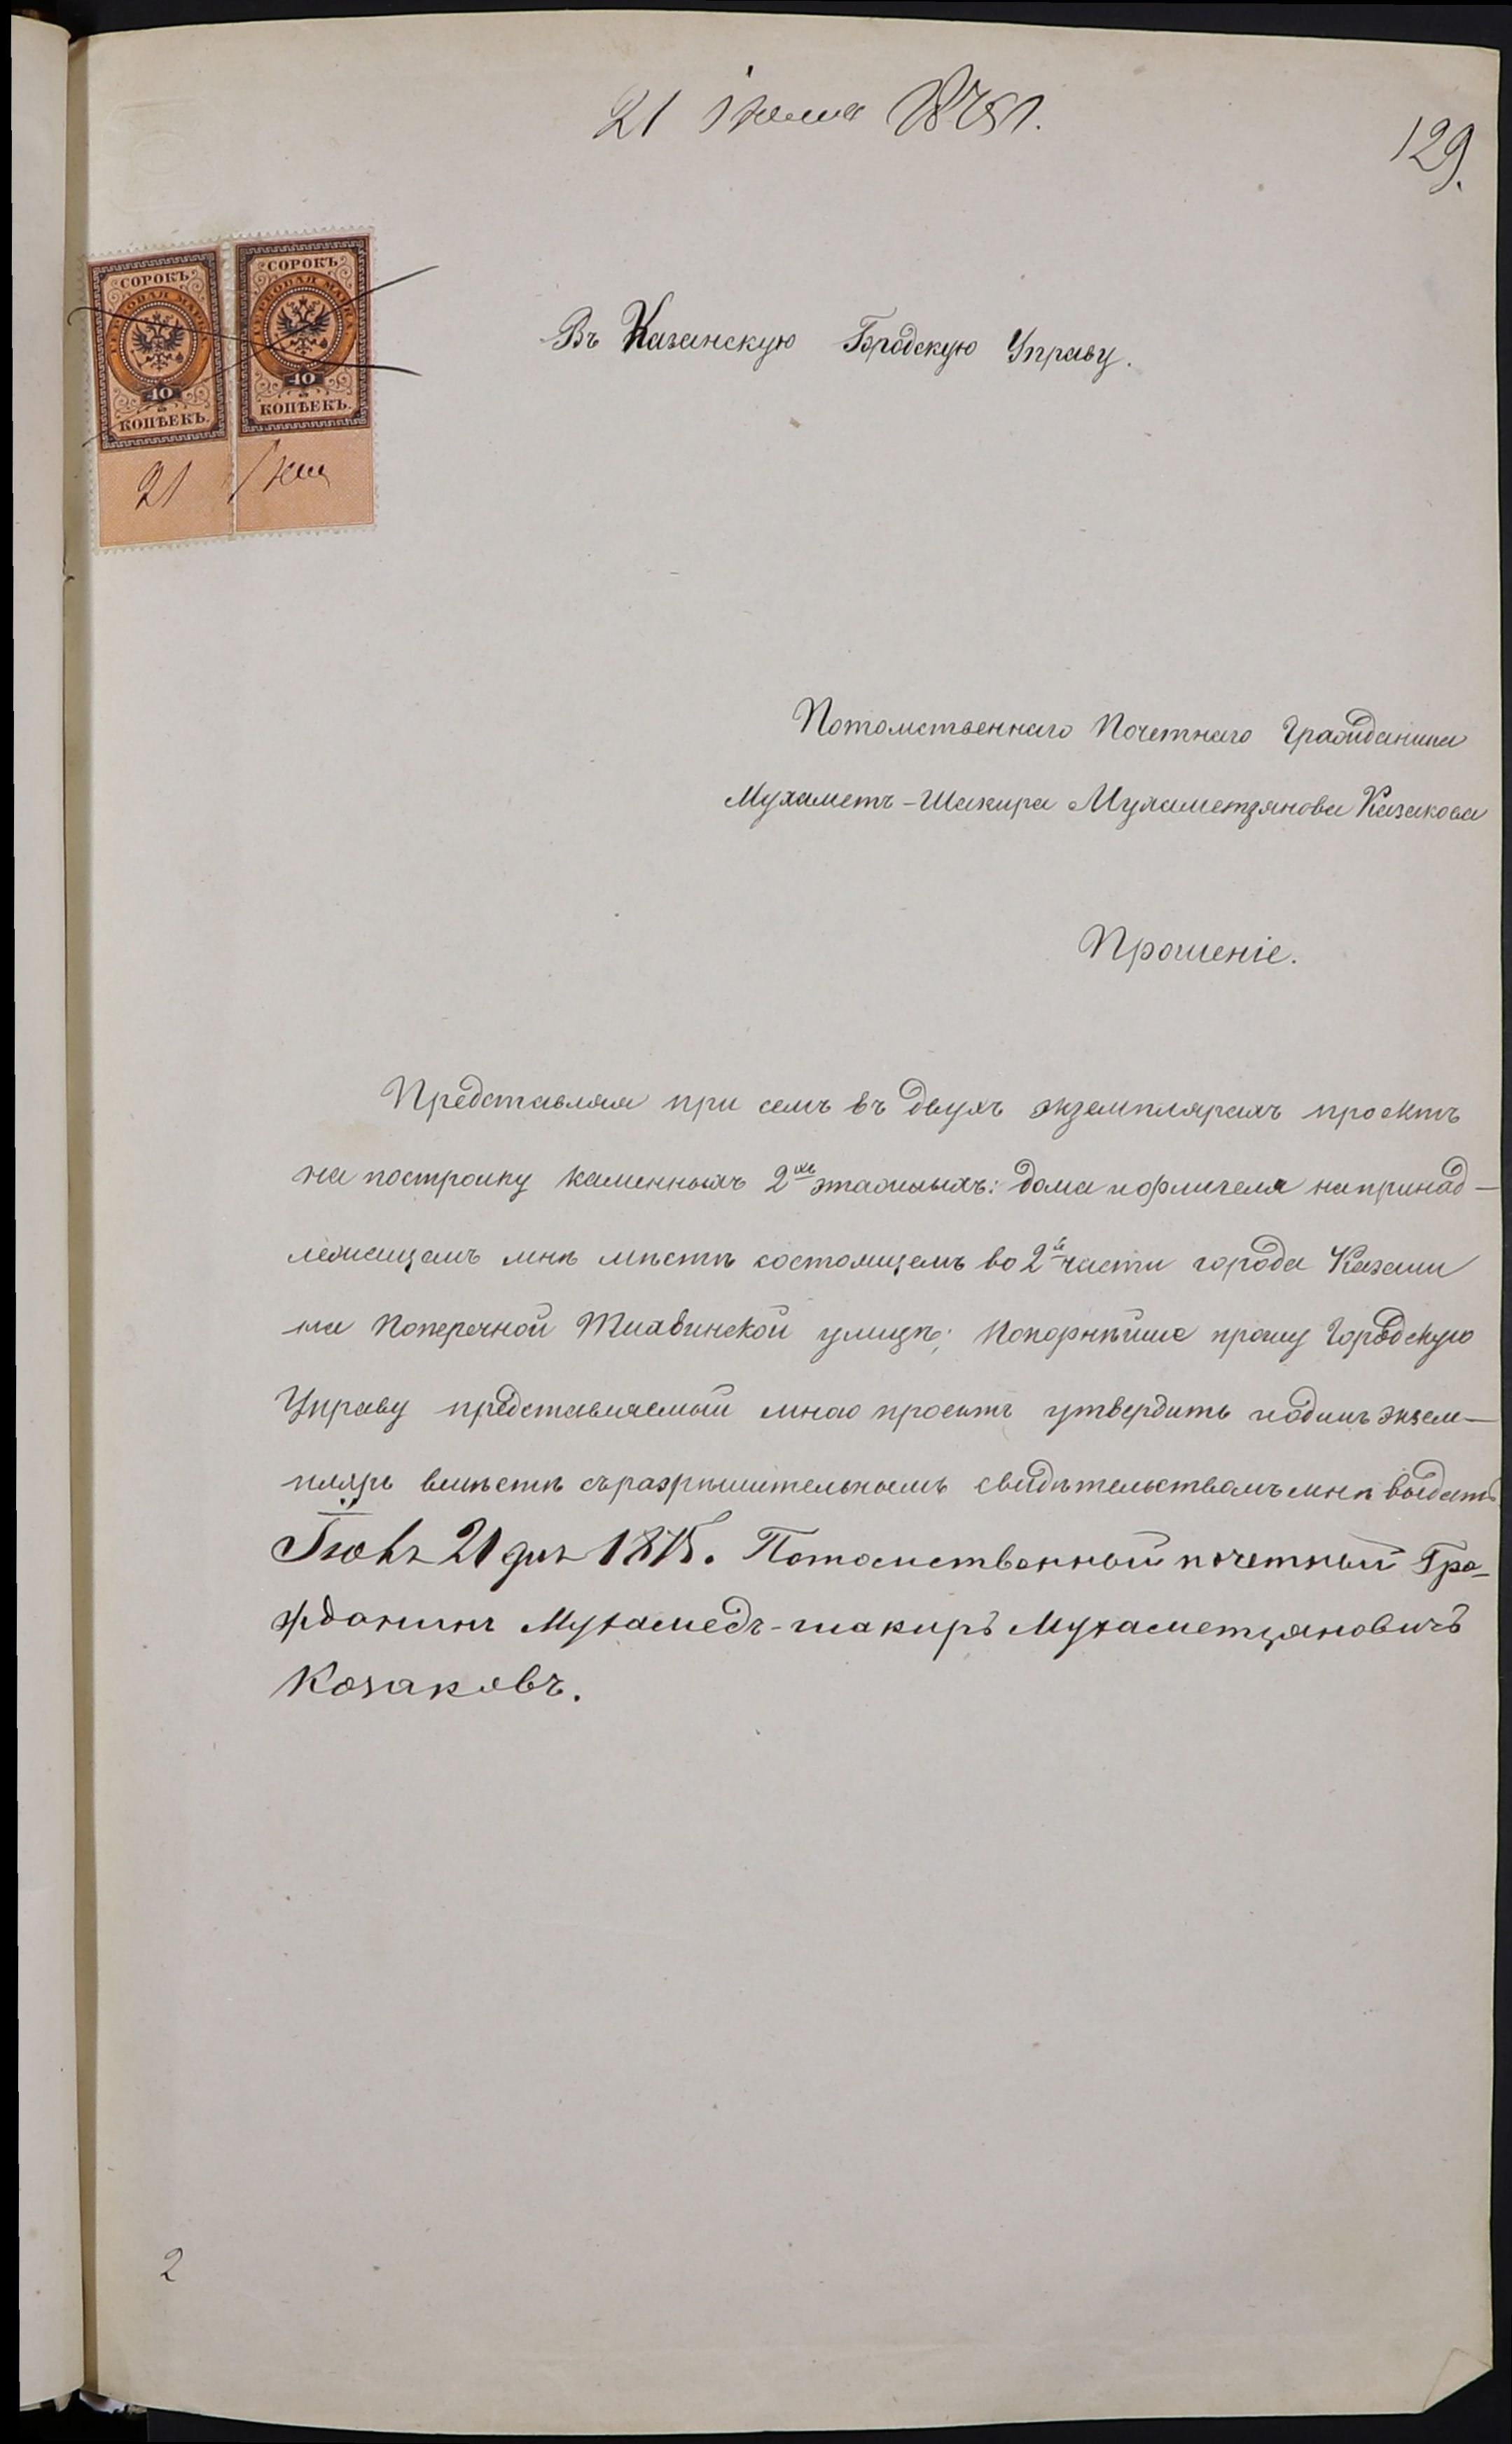 21 Іюня 1875 г.
129.
СОРОКЪ СОРОКЪ
ГЕРБОВАЯ МАРКА ГЕРБОВАЯ МАРКА
40 40
КОПѢЕКЪ. КОПѢЕКЪ.
21 Іюня
Въ Казанскую Городскую Управу.
Потомственнаго Почетнаго Гражданина
Мухаметъ-Шакира Мухаметзянова Казакова
Прошеніе.
Представляя при семъ въ двухъ экземплярахъ проэктъ
на постройку каменныхъ 2хъ этажныхъ: дома и флигеля на принад-
лежащемъ мнѣ мѣстѣ состоящемъ во 2й части города Казани
на Поперечной Тихвинской улицѣ; покорнѣйше прошу Городскую
Управу представляемый мною проектъ утвердить и одинъ экзем-
пляръ вмѣстѣ съ разрѣшительнымъ свидѣтельствомъ мнѣ выдать
Іюнь 21 дня 1875. Потомственный почетный Гра-
жданинъ Мухамедъ-шакиръ Мухаметзяновичъ
Козаковъ.
2